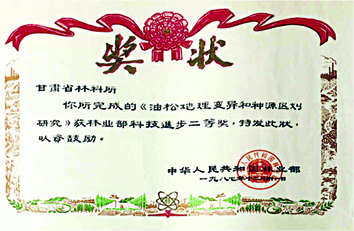 奖状
甘肃省林科所
你所完成的《油松地理变异和种源区划
研究》获林业部科技进步二等奖，特发此状，
以资鼓励。
中华人民共和国林业部
一九八七年